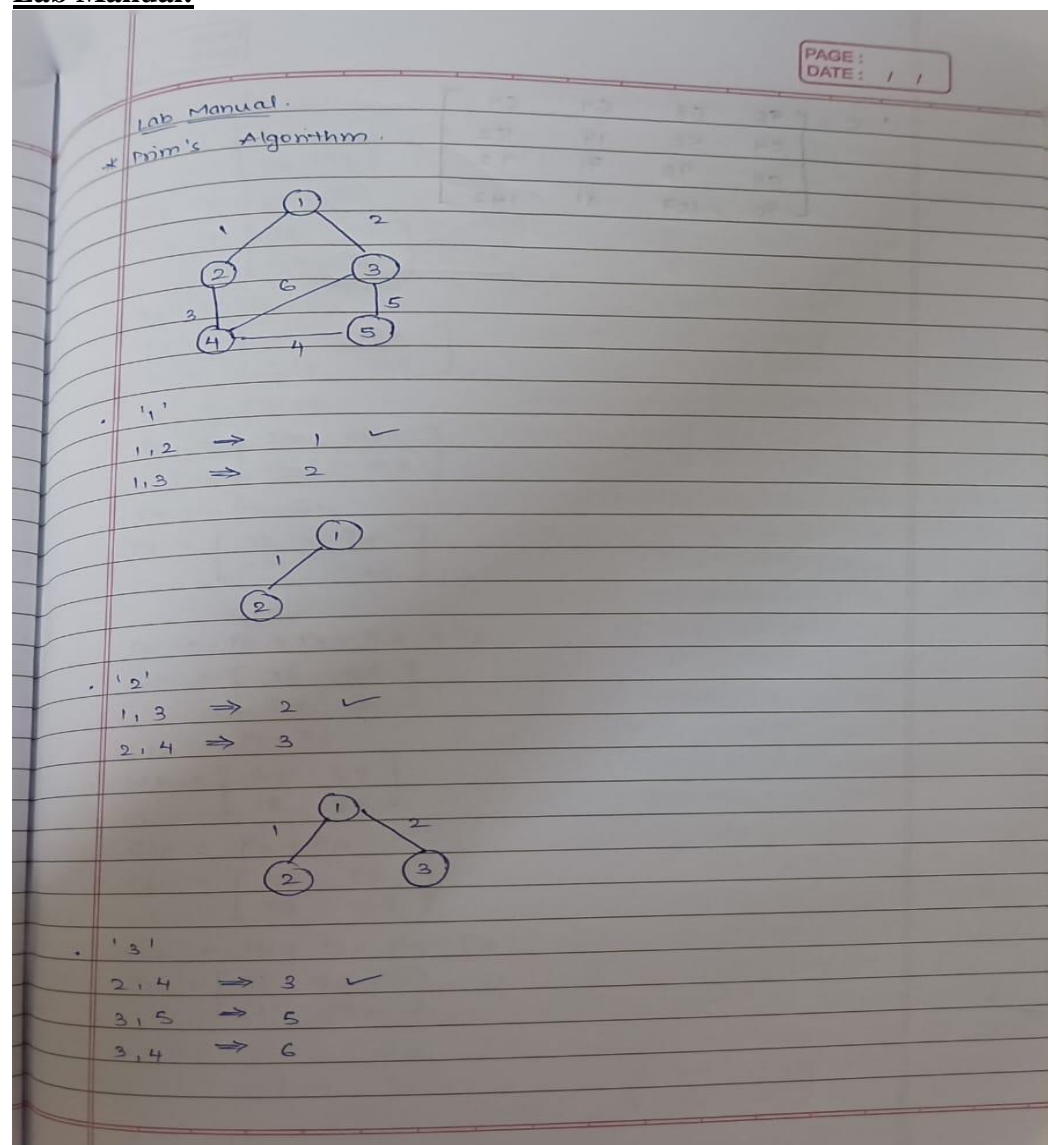 Lab Manual:
PAGE:
DATE: / /
Lab Manual.
* Prim's Algorithm.
1
1 2
2 6 3
3 5
4 4 5
• '1'
1,2 ⇒ 1 ✓
1,3 ⇒ 2
1
1
2
• '2'
1,3 ⇒ 2 ✓
2,4 ⇒ 3
1
1 2
2 3
• '3'
2,4 ⇒ 3 ✓
3,5 ⇒ 5
3,4 ⇒ 6